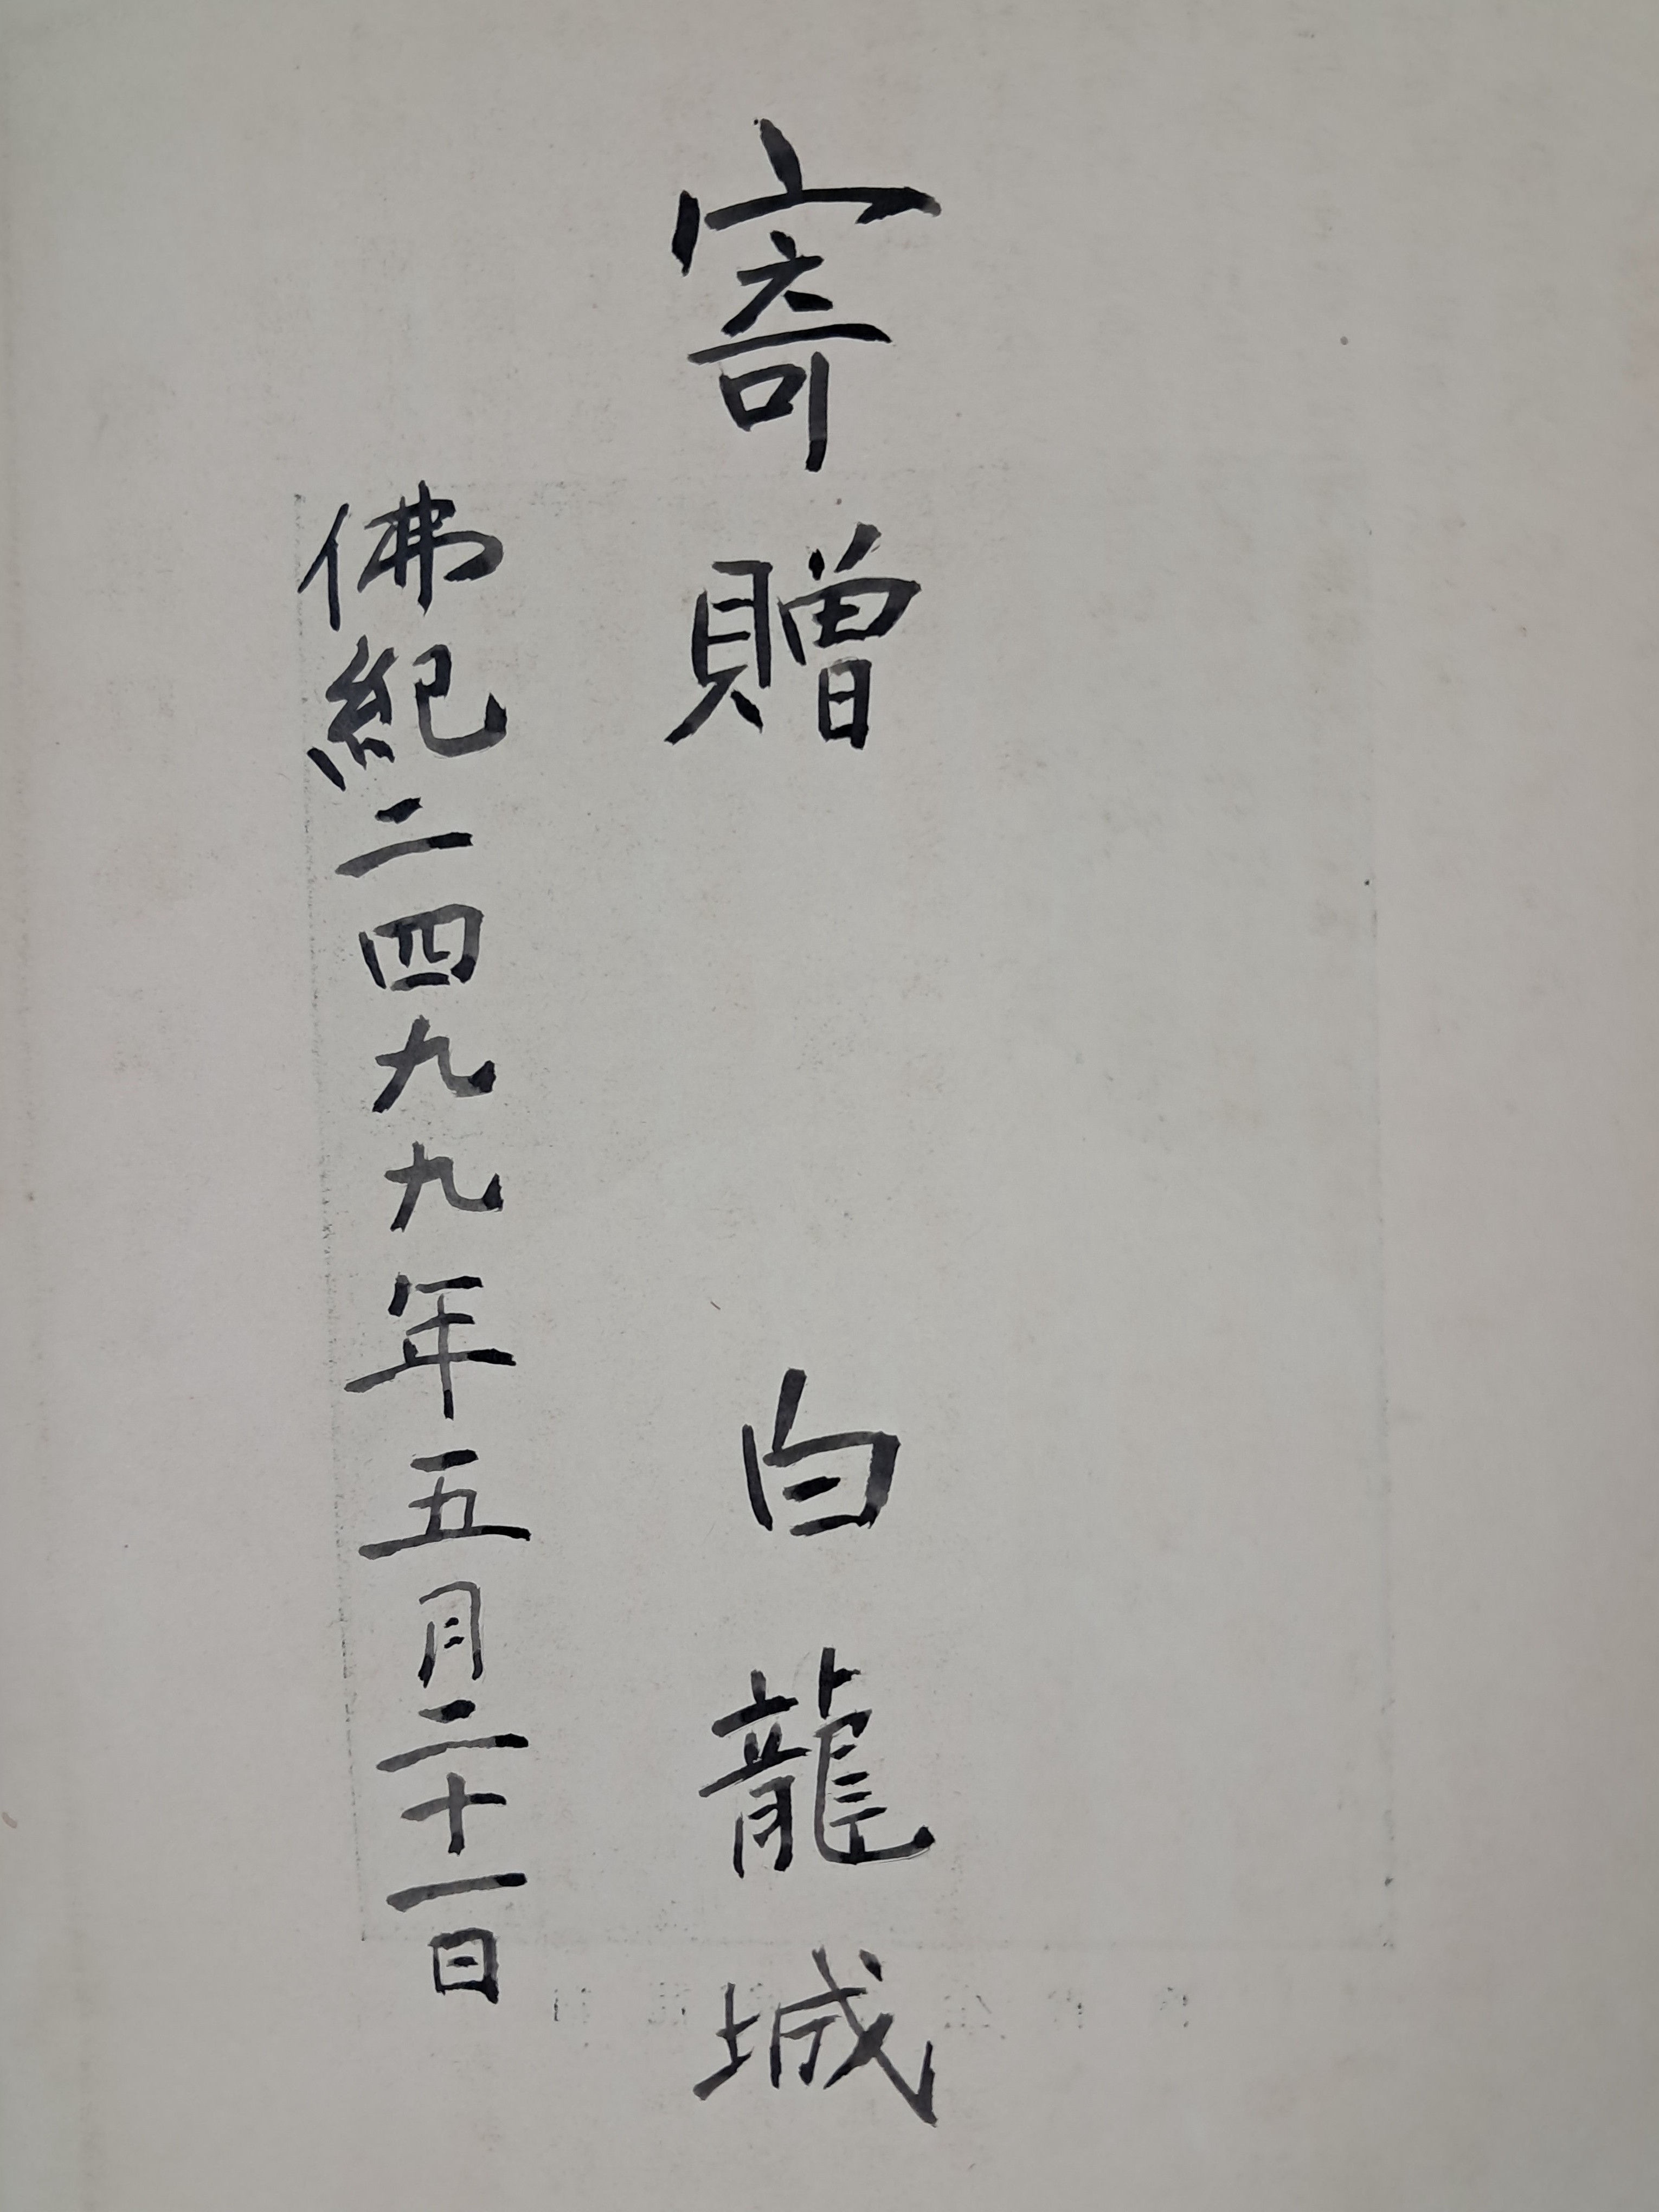 寄贈 白龍城
佛紀二四九九年五月二十一日